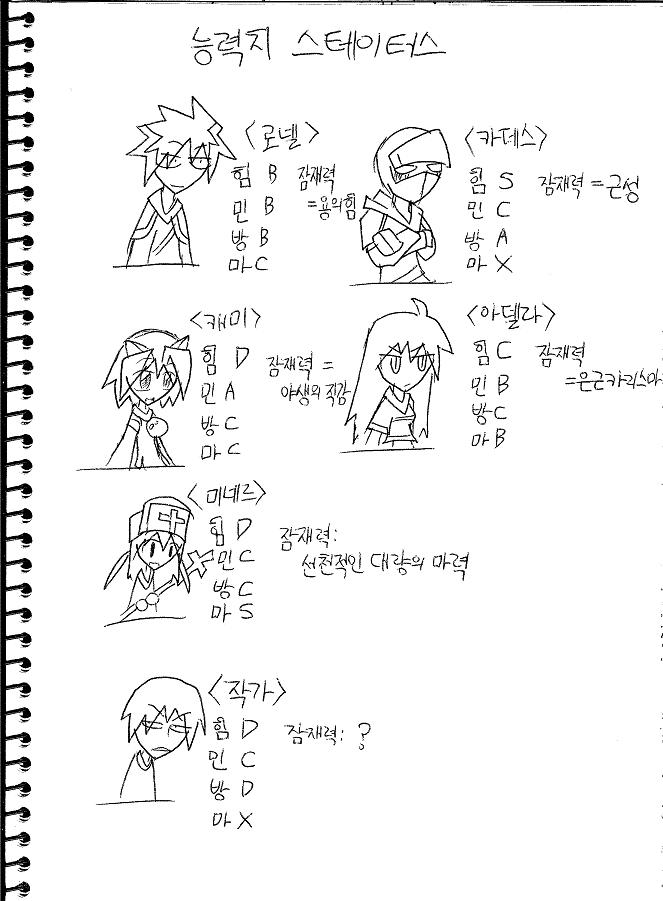 능력치 스테이터스
<로넬>
힘 B 잠재력
민 B =용의힘
방 B
마 C
<카데스>
힘 S 잠재력 = 근성
민 C
방 A
마 X
<캐미>
힘 D 잠재력 =
민 A 야생의 직감
방 C
마 C
<아델라>
힘 C 잠재력
민 B =은근카리스마
방 C
마 B
<미네르>
힘 D 잠재력:
민 C 선천적인 대량의 마력
방 C
마 S
<작가>
힘 D 잠재력: ?
민 C
방 D
마 X